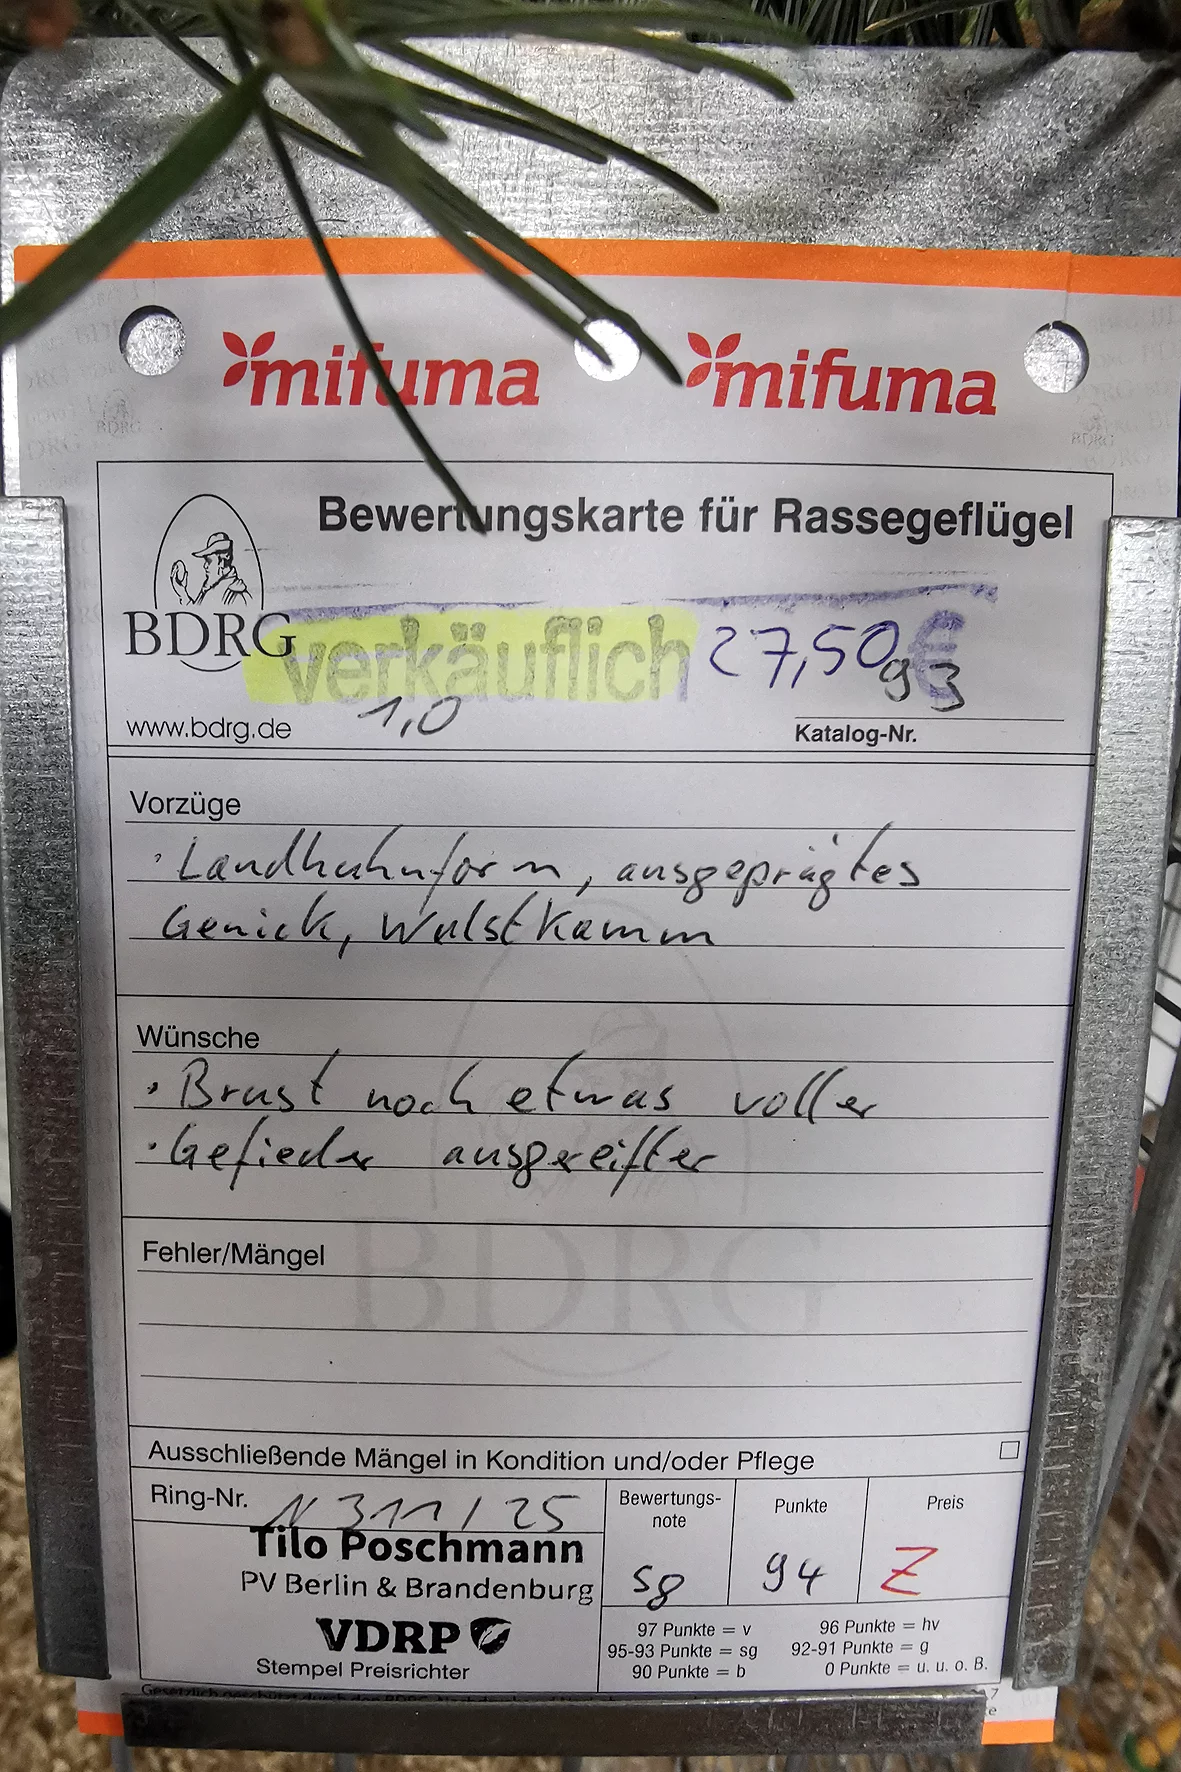 mifuma mifuma
Bewertungskarte für Rassegeflügel
BDRG
verkäuflich 27,50 €
1,0
93
www.bdrg.de
Katalog-Nr.
Vorzüge
· Landhuhnform, ausgeprägtes
Genick, Wulstkamm
Wünsche
· Brust noch etwas voller
· Gefieder ausgereifter
BDRG
Fehler/Mängel
Ausschließende Mängel in Kondition und/oder Pflege
Ring-Nr. N 311 / 25
Tilo Poschmann
PV Berlin & Brandenburg
VDRP
Stempel Preisrichter
Bewertungs-
note
sg
Punkte
94
Preis
Z
97 Punkte = v 96 Punkte = hv
95-93 Punkte = sg 92-91 Punkte = g
90 Punkte = b 0 Punkte = u. u. o. B.